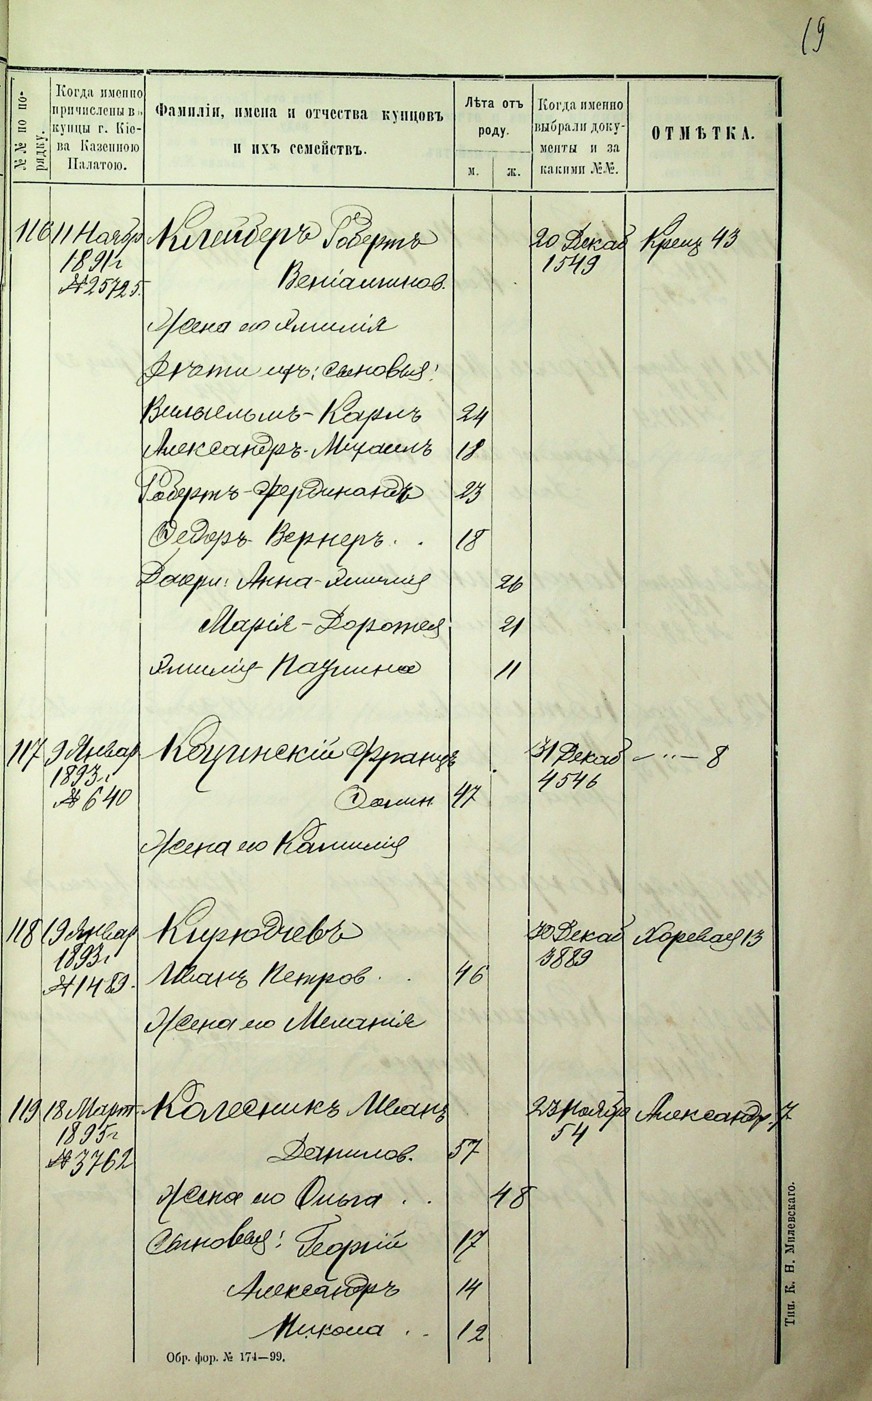 19
№№ по по-
рядку.
Когда именно
причислены въ
купцы г. Кіе-
ва Казенною
Палатою.
Фамиліи, имена и отчества купцовъ
и ихъ семействъ.
Лѣта отъ
роду.
м. ж.
Когда именно
выбрали доку-
менты и за
какими №№.
ОТМѢТКА.
116 11 Ноябр Клейберъ Робертъ 20 Декаб Крещ 43
1891г Веніаминов. 1549
№25725.
Жена его Эмилія
Дѣти ихъ: сыновья:
Вильгельмъ-Карлъ 24
Александръ-Михаилъ 18
Робертъ-Фердинандъ 23
Федоръ-Вернеръ . . 18
Дочери: Анна-Эмилія 26
Марія-Доротея 21
Эмилія-Паулина 11
117 9 Январ Францъ 31 Декаб —"— 8
1893г 4546
№640 47
Жена его Камилія
118 19 Январ 30 Декаб Хоревая 13
1893г 3889
№1489. Иванъ Петров. . 46
Жена его Меланія
119 18 Март Колесникъ Иванъ 23 Ноябр Александр. 7
1895г 54
№3762 Данилов. 57
Жена его Ольга . . 48
Сыновья: Георгій 17
Александръ 14
Никола . . 12
Обр. фор. № 174—99.
Тип. К. Н. Милевскаго.